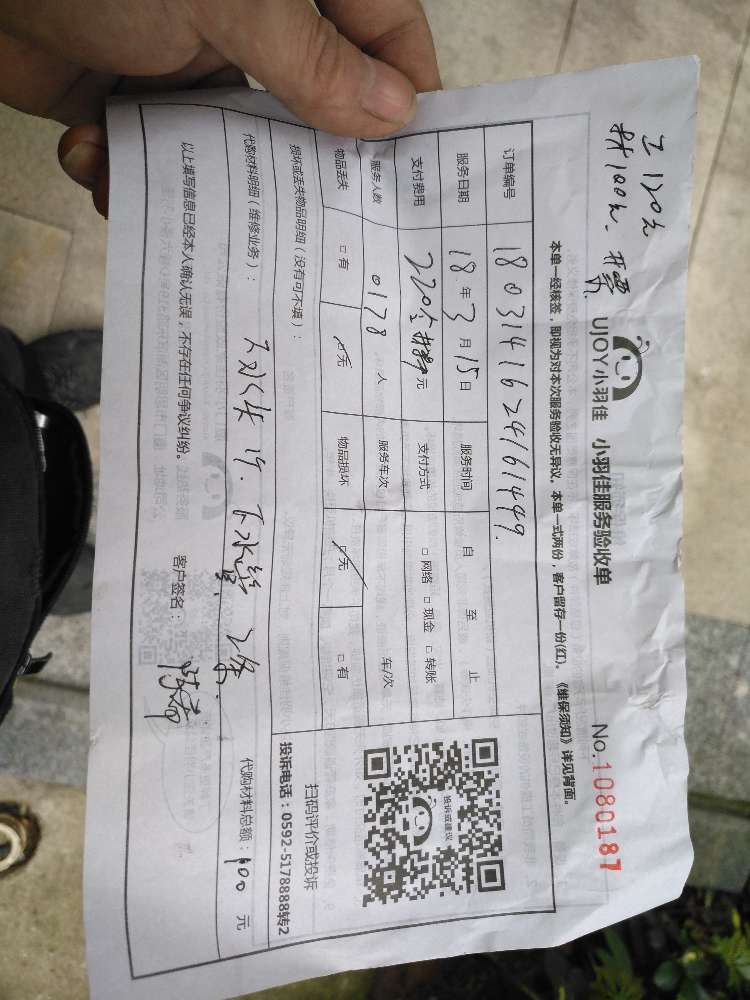 工120元
材100元、开票
UJOY小羽佳 小羽佳服务验收单
No.1080187
本单一经核签，即视为对本次服务验收无异议。本单一式两份，客户留存一份(红)。《维保须知》详见背面。
订单编号 18031416241161449
服务日期 18年3月15日 服务时间 自 至 止
支付费用 220 元 支付方式 □网络 □现金 □转账
服务人数 0178 人 服务车次 车/次
物品丢失 □有 □无 物品损坏 □无 □有
损坏或丢失物品明细（没有可不填）：
扫码评价或投诉
投诉电话：0592-5178888转2
投诉或建议
代购材料明细（维修业务）： 下水管 2条
代购材料总额：100 元
以上填写信息已经本人确认无误，不存在任何争议纠纷。 客户签名：